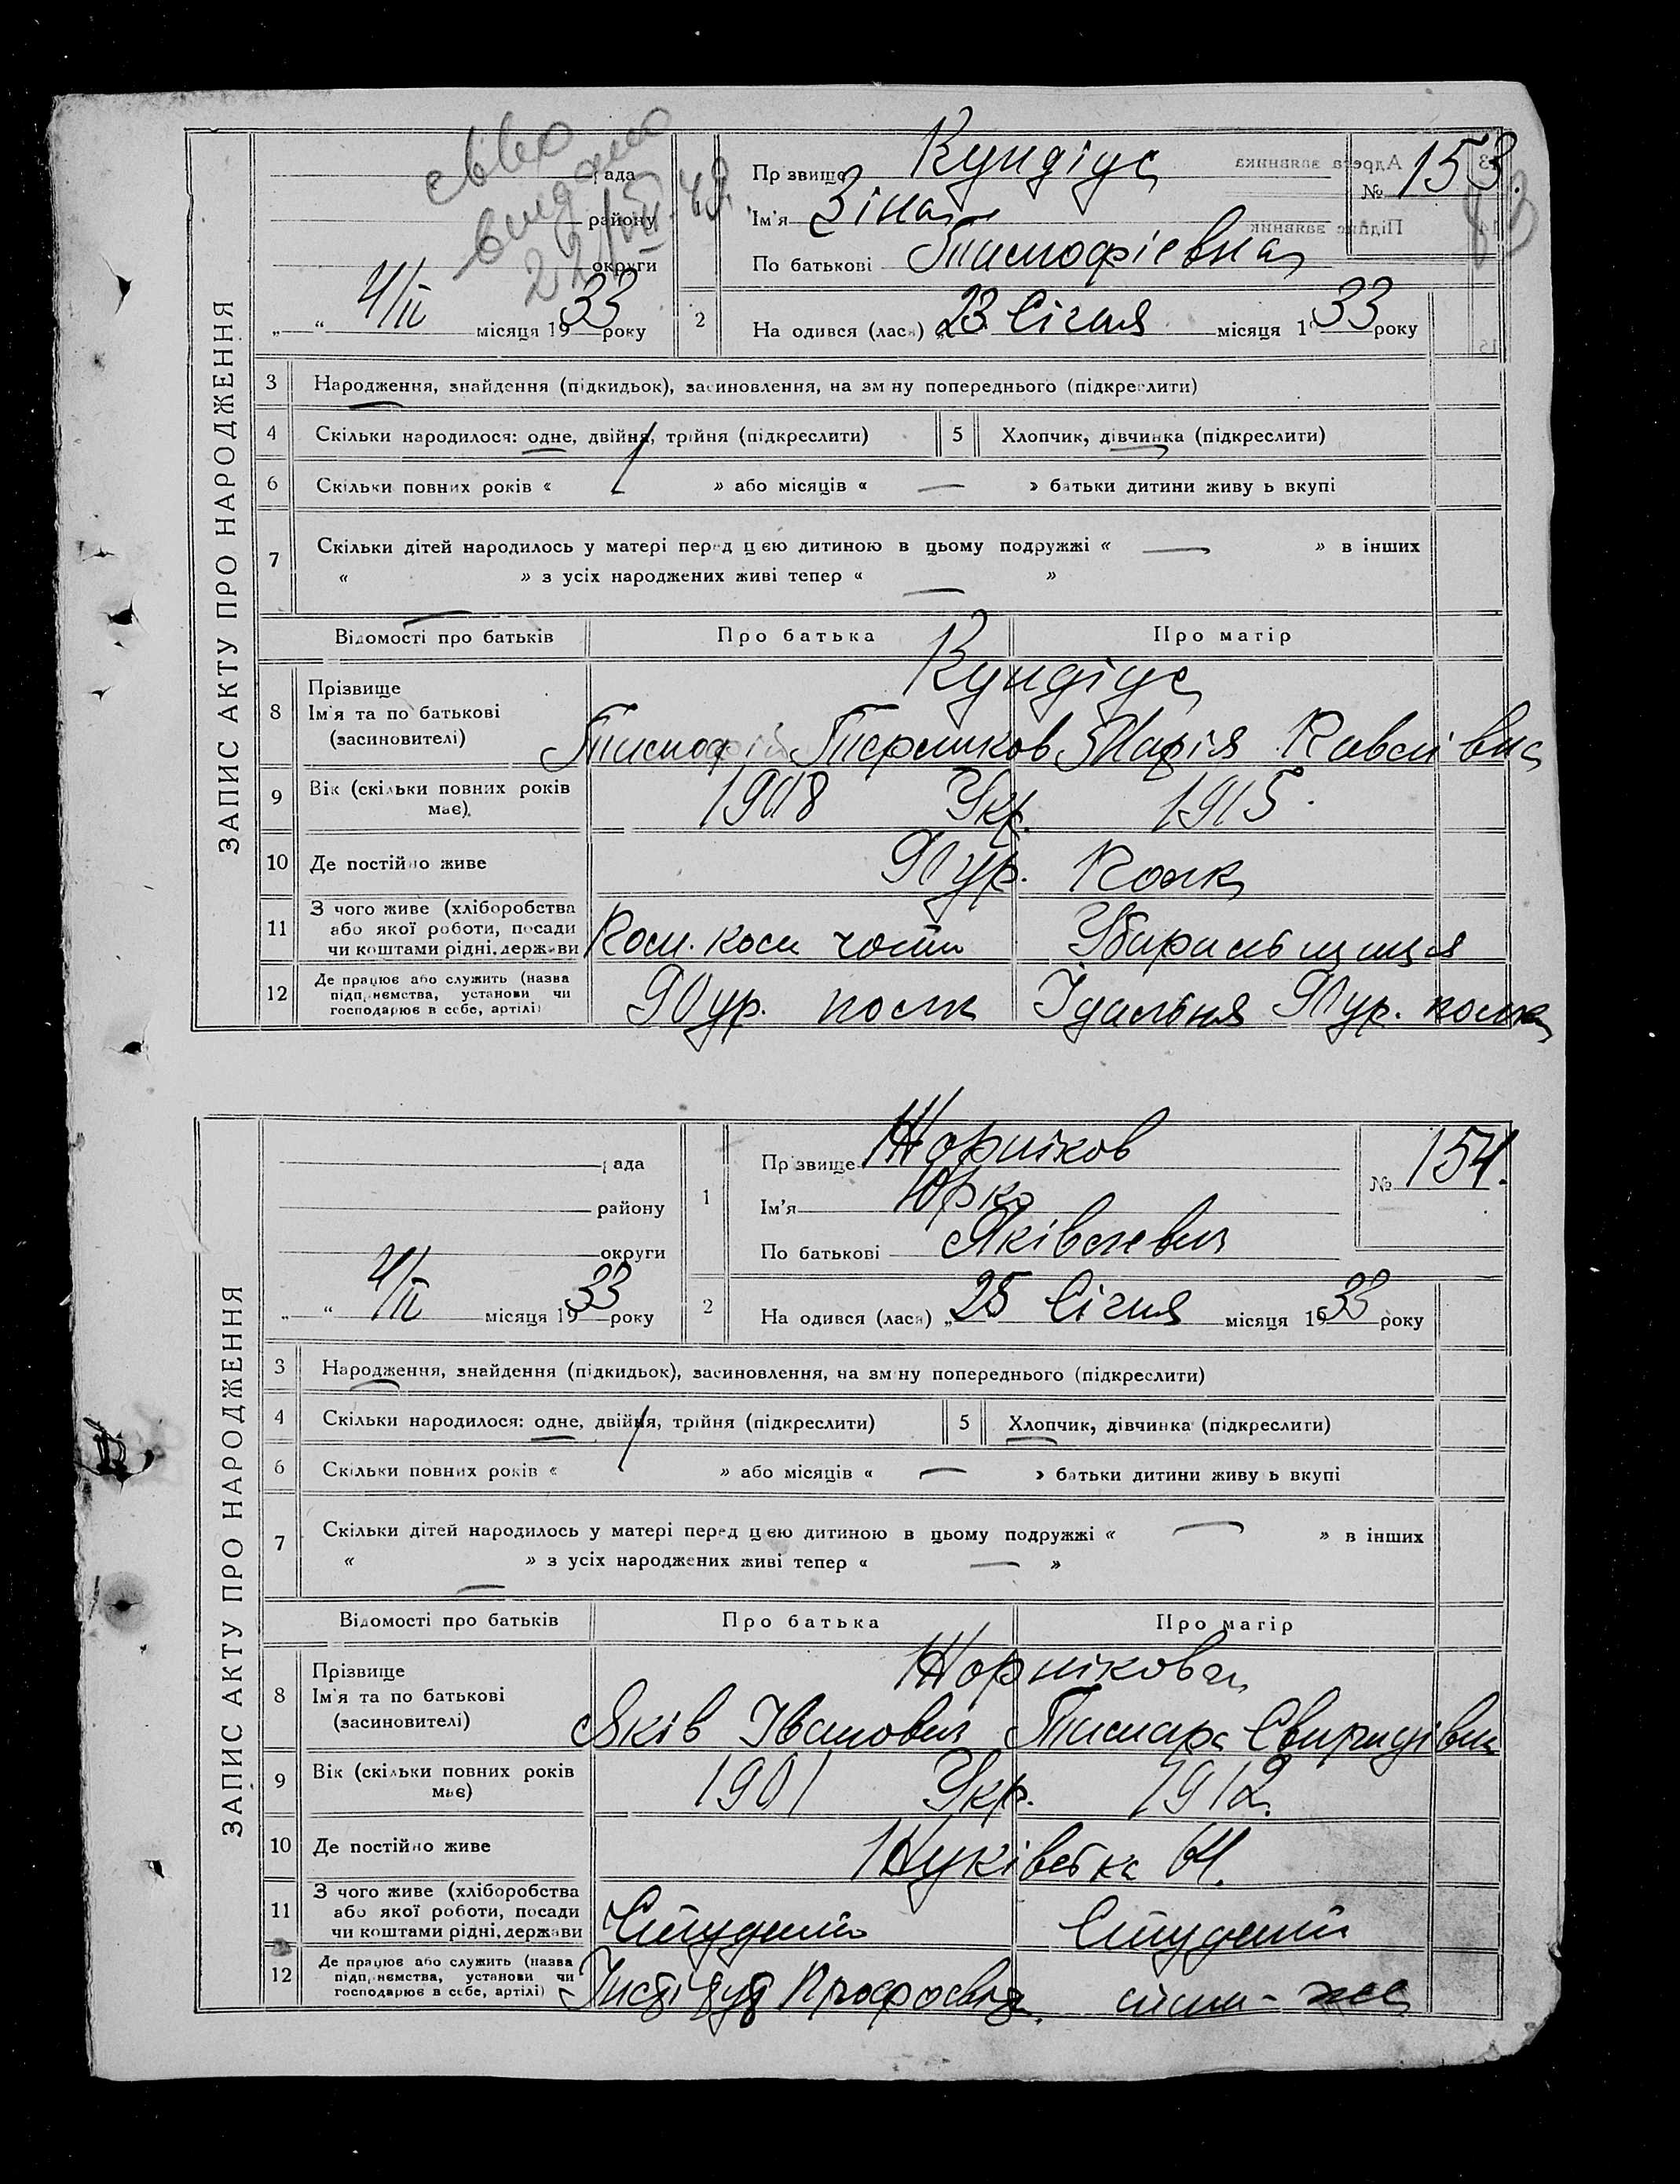 ЗАПИС АКТУ ПРО НАРОДЖЕННЯ
видано
рада
району
округи
„ “ 4/II місяця 1933 року
Прізвище Кундіус
Ім'я Зіна
По батькові Тимофіевна
№ 153.
Адреса заявника
Підпис заявник
83
2 Народився (лась) „23 Січня місяця 1933 року
3 Народження, знайдення (підкидьок), засиновлення, на зміну попереднього (підкреслити)
4 Скільки народилося: одне, двійня, трійня (підкреслити)
5 Хлопчик, дівчинка (підкреслити)
6 Скільки повних років « 1 » або місяців « — » батьки дитини живуть вкупі
7 Скільки дітей народилось у матері перед цією дитиною в цьому подружжі « — » в інших
« — » з усіх народжених живі тепер « — »
Відомості про батьків Про батька Про матір
8 Прізвище Кундіус
Ім'я та по батькові
(засиновителі) Тимофій Марія
9 Вік (скільки повних років має). 1908 Укр. 1915.
10 Де постійно живе 90 ур.
11 З чого живе (хліборобства
або якої роботи, посади
чи коштами рідні, держави
12 Де працює або служить (назва
підприємства, установи чи
господарює в себе, артілі) 90 ур. полк Їдальня 90 ур. полка
ЗАПИС АКТУ ПРО НАРОДЖЕННЯ
рада
району
округи
„ “ 4/II місяця 1933 року
1 Прізвище Жорніков
Ім'я Юрко
По батькові Яківлевич
№ 154.
2 Народився (лась) „25 Січня місяця 1933 року
3 Народження, знайдення (підкидьок), засиновлення, на зміну попереднього (підкреслити)
4 Скільки народилося: одне, двійня, трійня (підкреслити)
5 Хлопчик, дівчинка (підкреслити)
6 Скільки повних років « 1 » або місяців « — » батьки дитини живуть вкупі
7 Скільки дітей народилось у матері перед цією дитиною в цьому подружжі « — » в інших
« — » з усіх народжених живі тепер « — »
Відомості про батьків Про батька Про матір
8 Прізвище Жорнікова
Ім'я та по батькові
(засиновителі) Яків Іванович Тамара Свиридівна
9 Вік (скільки повних років має) 1901 Укр. 1912.
10 Де постійно живе
11 З чого живе (хліборобства
або якої роботи, посади
чи коштами рідні, держави Студент Студент
12 Де працює або служить (назва
підприємства, установи чи
господарює в себе, артілі) Інстітут Профосвіт.